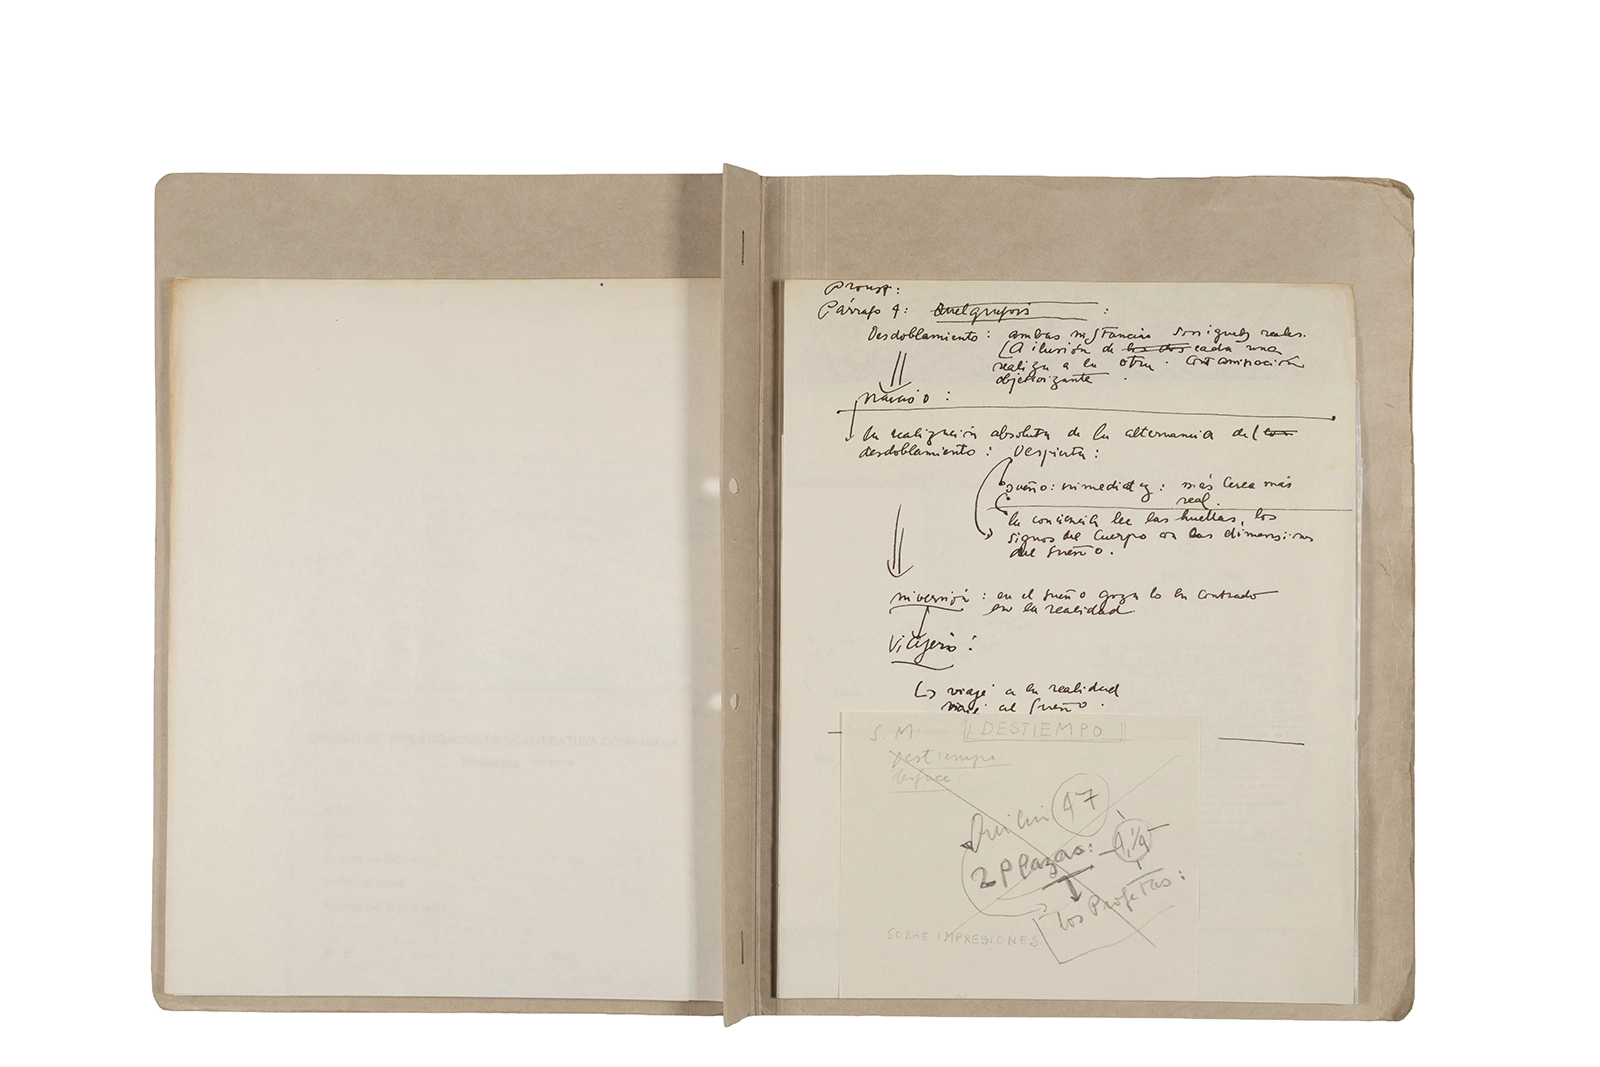 Proust:
Párrafo 4: :
Desdoblamiento: ambas instancias son igual reales.
La ilusión de los dos cada una
realiza a la otra. Contaminación
objetivizante.
la realización absoluta de la alternancia del
desdoblamiento: Despierta:
sueño: inmediatez: más cerca más
real.
la conciencia lee las huellas, los
signos del cuerpo en las dimensiones
del sueño.
inversión: en el sueño goza lo en contrado
en la realidad
Viajero:
viaje a la realidad
viaje al sueño.
S. M. DESTIEMPO
Destiempo:
desface:
47
2 Plazas:
los Profetas:
SOBRE IMPRESIONES